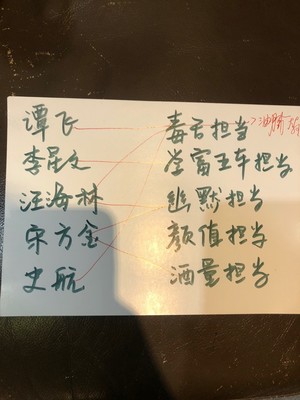 谭飞 毒舌担当 油腻
李星文 富王车担当
汪海林 幽默担当
宋方金 颜值担当
史航 酒量担当